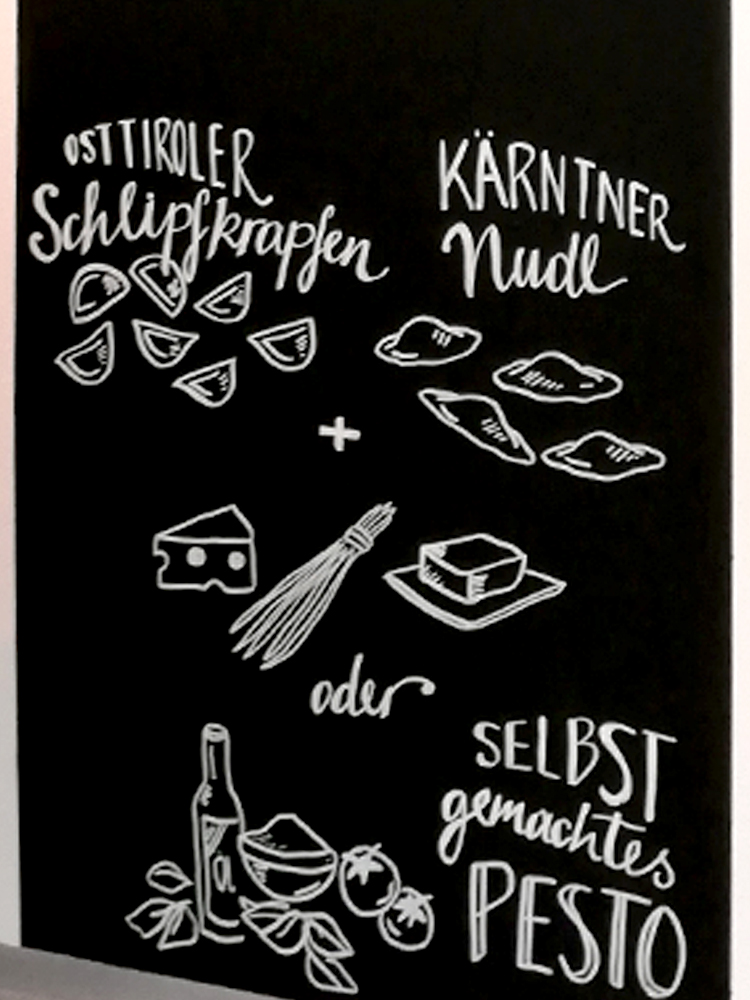 OSTTIROLER
Schlipfkrapfen
KÄRNTNER
Nudl
+
oder
SELBST
gemachtes
PESTO